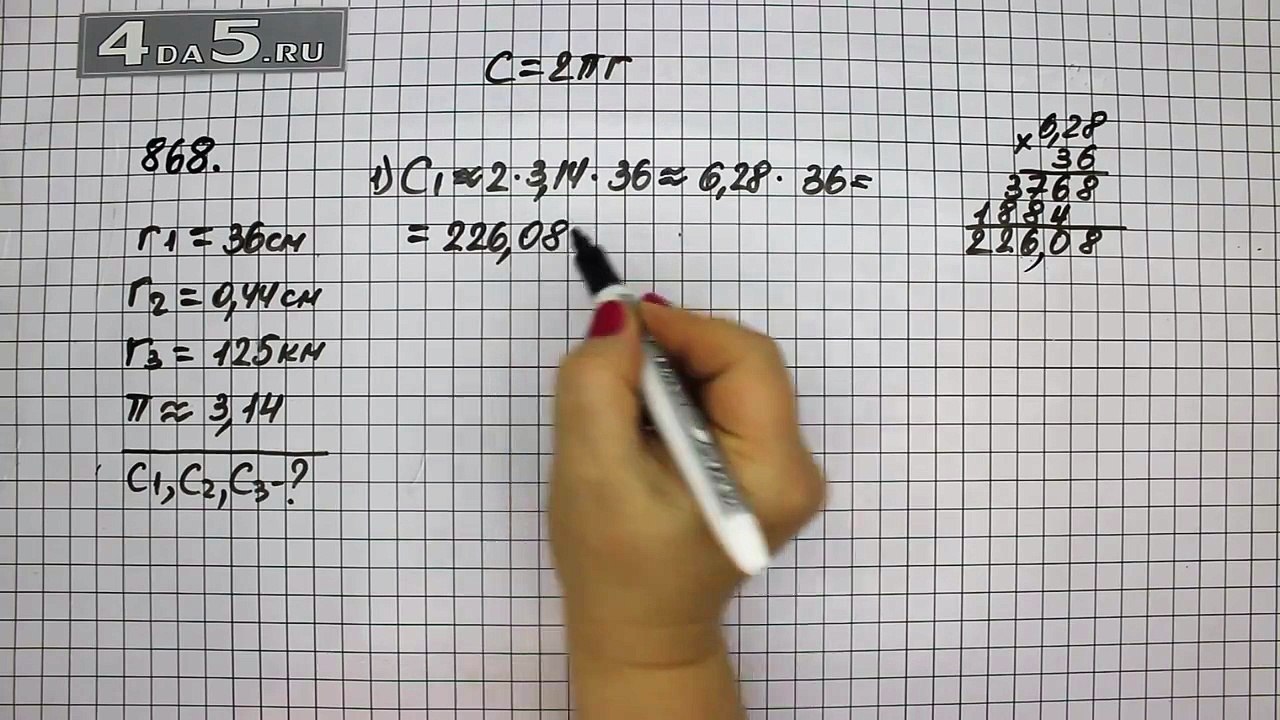 4DA5.RU
C=2πr
868.
r1 = 36см
r2 = 0,44см
r3 = 125км
π ≈ 3,14
C1, C2, C3 - ?
1) C1 ≈ 2 · 3,14 · 36 ≈ 6,28 · 36 =
= 226,08
× 6,28
36
3768
1884
226,08